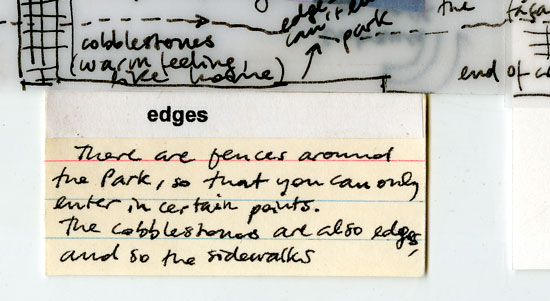 edges
the
park
cobblestones
(warm feeling,
like home)
end of
edges
There are fences around
the Park, so that you can only
enter in certain points.
The cobblestones are also edges,
and so the sidewalks